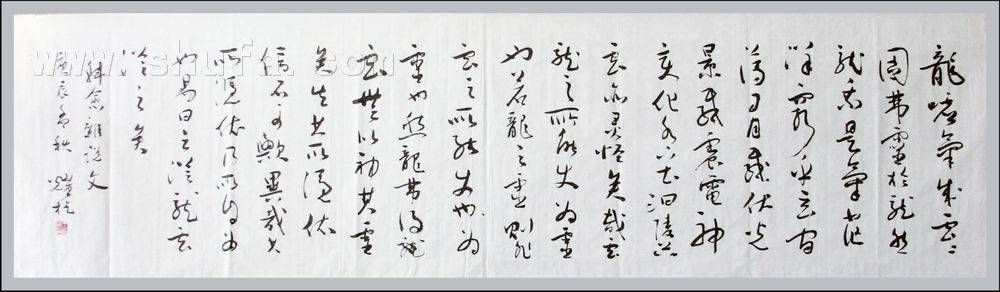 龍嘘氣成雲〻
固弗靈於龍然
龍乘是氣茫
洋窮乎玄間
薄日月伏光
景感震電神
變化水下土汩陵谷
雲亦靈怪矣哉雲
龍之所能使為靈
也若龍之靈則非
雲之所能使也為
靈也然龍弗得
雲無以神其靈
矣失其所憑依
信不可歟異哉其
所憑依乃所自為
也易曰雲從龍雲
從之矣
韓愈雜說文
辰年秋